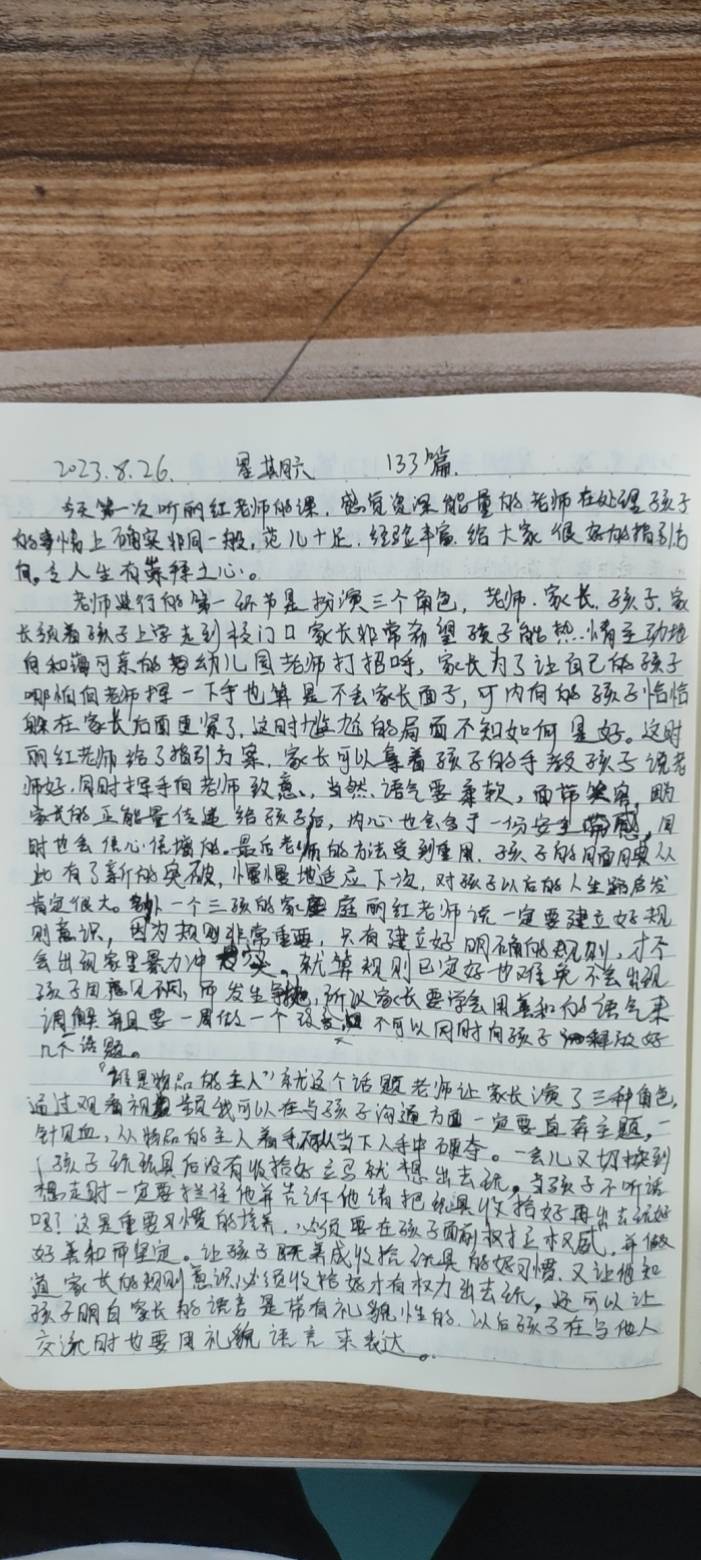 2023.8.26. 星期六 133篇.
今天第一次听丽红老师的课,感觉资深能量的老师在处理孩子
的事情上确实非同一般,范儿十足.经验丰富.给大家很好的指引方
向。令人生有崇拜之心。
老师进行的第一环节是扮演三个角色,老师.家长.孩子.家
长领着孩子上学走到校门口家长非常希望孩子能热情主动地
向和蔼可亲的幼儿园老师打招呼,家长为了让自己的孩子
哪怕向老师挥一下手也算是不丢家长面子,可内向的孩子恰恰
躲在家长后面更紧了,这时尴尬的局面不知如何是好。这时
丽红老师给了指引方案,家长可以拿着孩子的手教孩子说老
师好,同时挥手向老师致意,当然.语气要柔软,面带笑容,因为
家长的正能量传递给孩子后,内心也会多于一份安全带感,同
时也会信心倍增的。最后老师的方法受到重用.孩子的
此有了新的突破,慢慢地适应下次,对孩子以后的人生路启发
肯定很大。另外一个三孩的家庭丽红老师说一定要建立好规
则意识,因为规则非常重要,只有建立好明确的规则,才不
会出现家里暴力冲突。就算规则已定好也难免不会出现
孩子因意见不同,而发生争抢,所以家长要学会用善和的语气来
调解并且要一周做一个 不可以同时向孩子 释放好
几个话题。
"谁是物品的主人"就这个话题老师让家长演了三种角色,
通过观看视频我可以在与孩子沟通方面一定要直奔主题,一
针见血,从物品的主人着手而不从当下人手中硬夺。一会儿又切换到
孩子玩玩具后没有收拾好立马就想出去玩。当孩子不听话
想走时一定要拦住他并告诉他请把玩具收拾好再出去玩好
吗?这是重要习惯的培养,必须要在孩子面前权扛权威,并做
好善和而坚定。让孩子既养成收拾玩具的好习惯.又让他知
道家长的规则意识必须收拾好才有权力出去玩,还可以让
孩子明白家长的语言是带有礼貌性的.以后孩子在与他人
交流时也要用礼貌语言来表达。